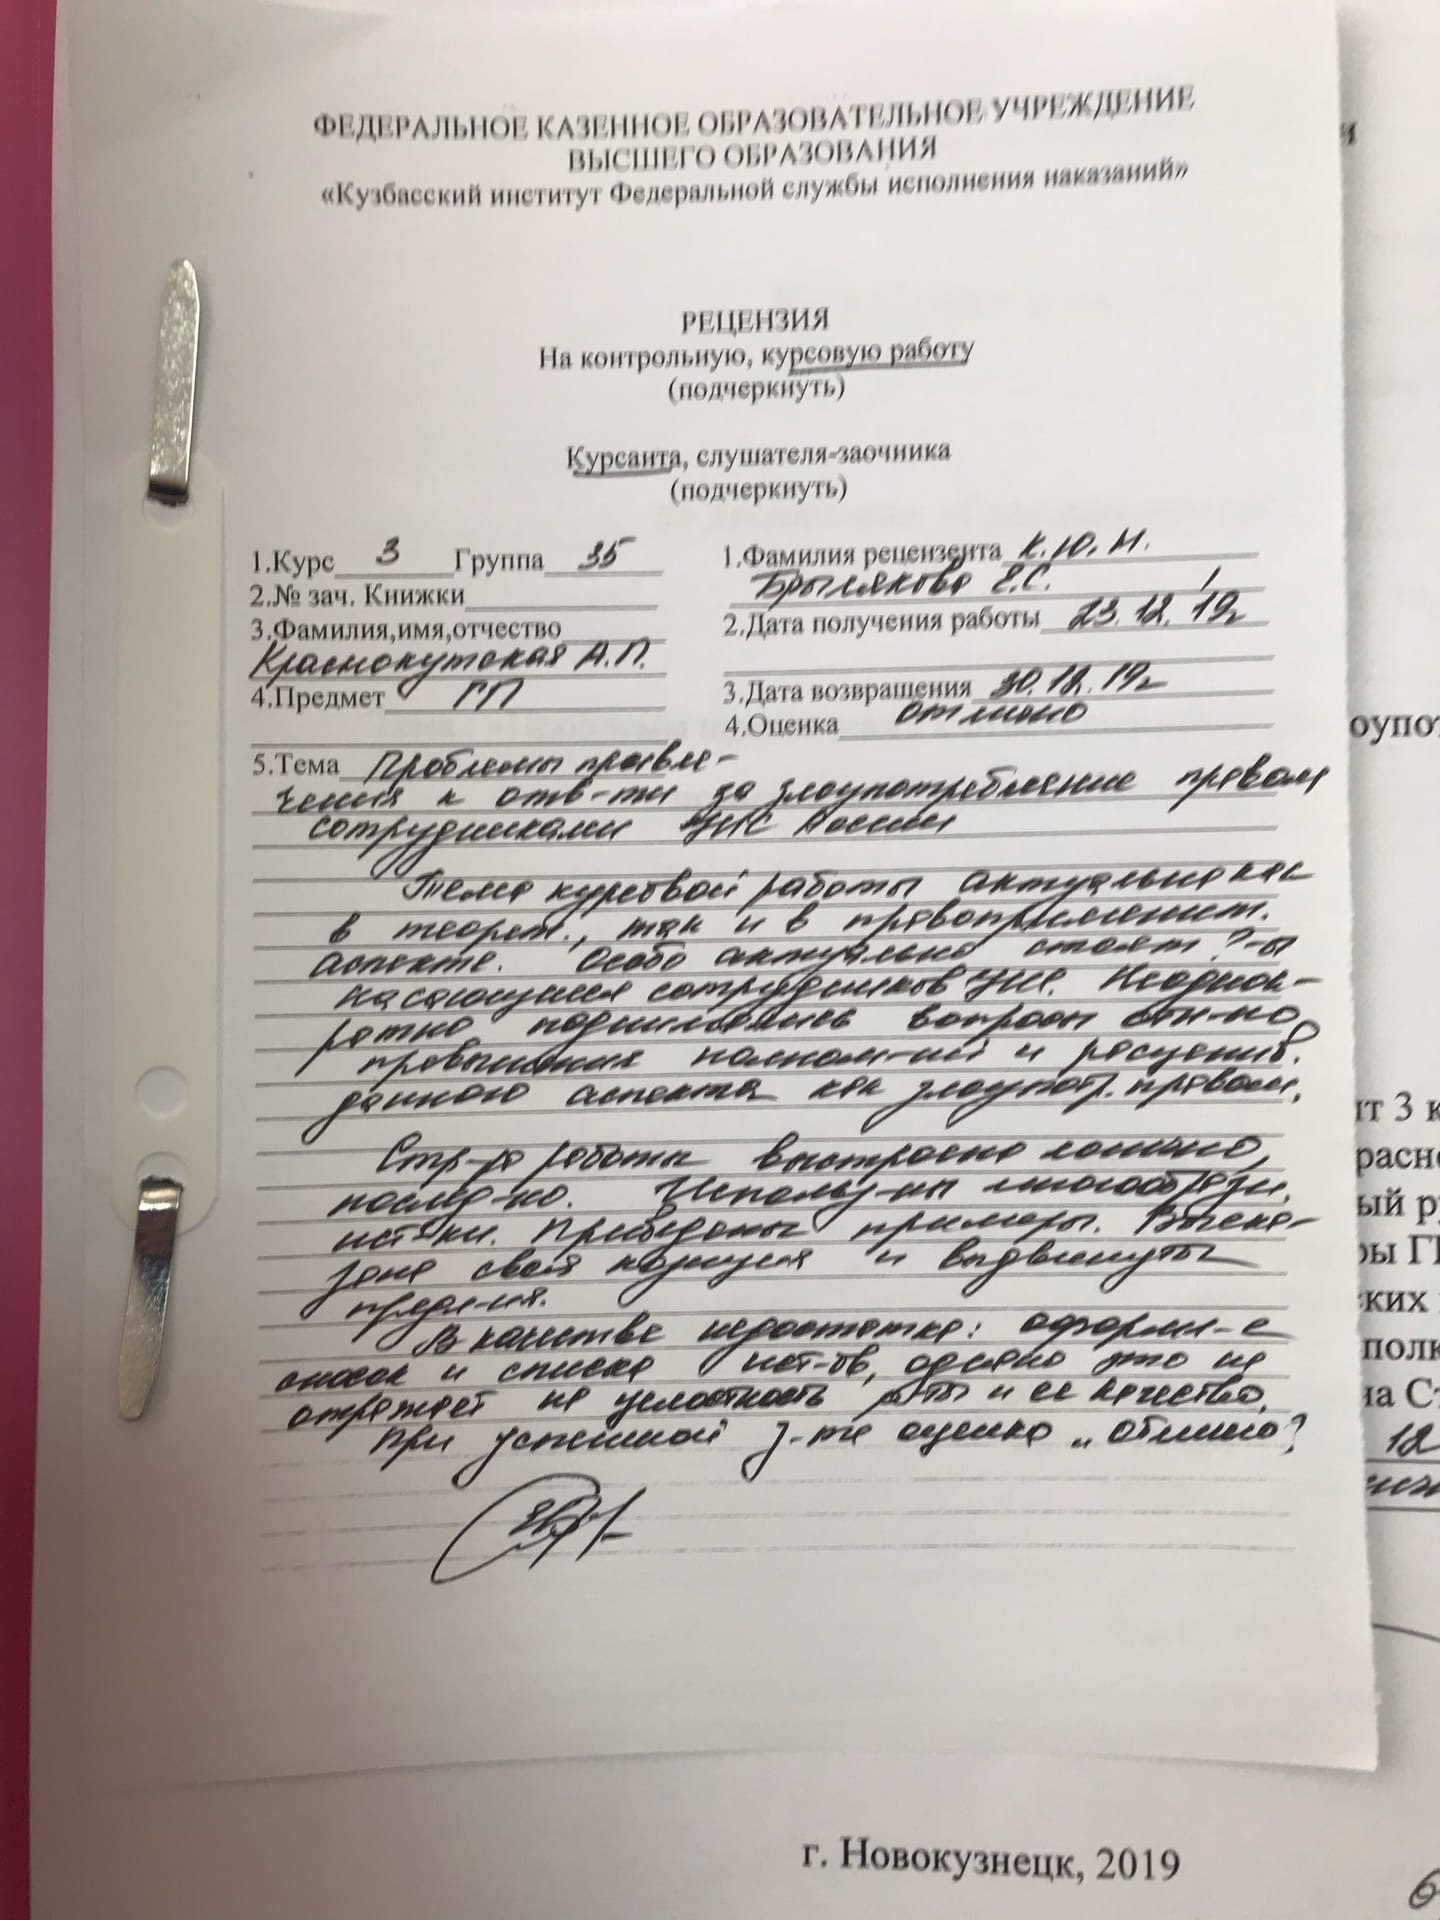 ФЕДЕРАЛЬНОЕ КАЗЕННОЕ ОБРАЗОВАТЕЛЬНОЕ УЧРЕЖДЕНИЕ
ВЫСШЕГО ОБРАЗОВАНИЯ
«Кузбасский институт Федеральной службы исполнения наказаний»
РЕЦЕНЗИЯ
На контрольную, курсовую работу
(подчеркнуть)
Курсанта, слушателя-заочника
(подчеркнуть)
1.Курс 3 Группа 35
2.№ зач. Книжки
3.Фамилия,имя,отчество
Краснокутская А.П.
4.Предмет ГП
1.Фамилия рецензента к.ю.н.
Брылякова Е.С.
2.Дата получения работы 23.12.19г
3.Дата возвращения 30.12.19г
4.Оценка отлично
5.Тема Проблемы привле-
чения к отв-ти за злоупотребление правом
сотрудниками УИС России
Тема курсовой работы актуальна как
в теорет., так и в правоприменит.
аспекте. Особо актуально стоят ?-ы
касающиеся сотрудников УИС. Неоднок-
ратно поднимались вопросы отн-но
превышения полном-ий и расценив.
данного аспекта как злоупотр. правом.
Стр-ра работы выстроена логично,
послед-но. Использ-ны многообрази.
ист-ки. Приведены примеры. Выска-
зана своя позиция и выдвинуты
предл-ия.
В качестве недостатка: оформл-е
сносок и списка ист-ов, однако это не
отражает на целостность р-ты и ее качество.
При успешной з-те оценка „отлично"
оупот
т 3 к
расно
ый ру
ры ГП
ских
полк
на Ст
12
г. Новокузнецк, 2019